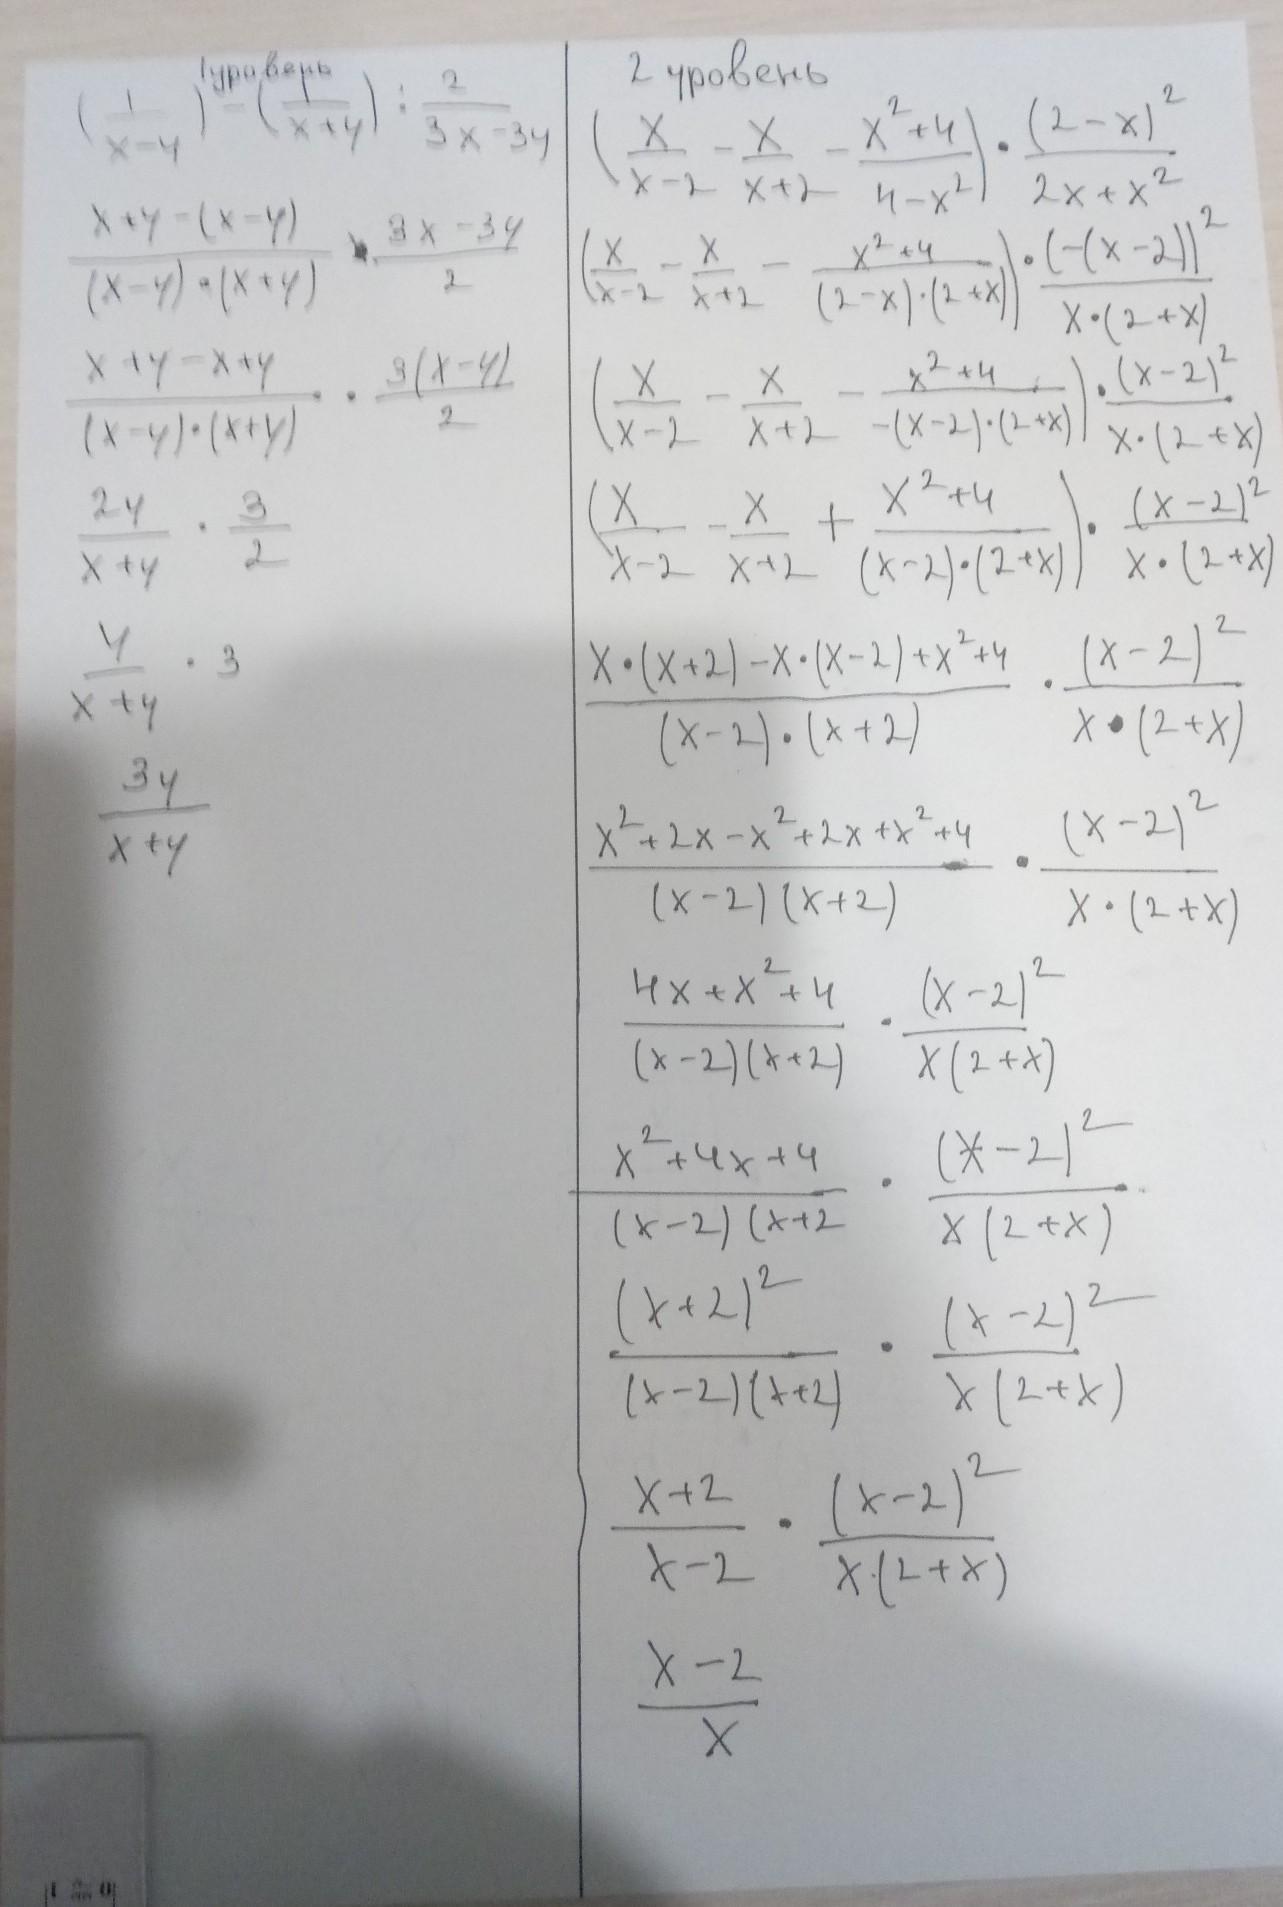 1 уровень
(1/(x-y)) - (1/(x+y)) : 2/(3x-3y)
(x+y-(x-y))/((x-y)·(x+y)) · (3x-3y)/2
(x+y-x+y)/((x-y)·(x+y)) · 3(x-y)/2
2y/(x+y) · 3/2
y/(x+y) · 3
3y/(x+y)
2 уровень
(x/(x-2) - x/(x+2) - (x²+4)/(4-x²)) · (2-x)²/(2x+x²)
(x/(x-2) - x/(x+2) - (x²+4)/((2-x)·(2+x))) · (-(x-2))²/(x·(2+x))
(x/(x-2) - x/(x+2) - (x²+4)/(-(x-2)·(2+x))) · (x-2)²/(x·(2+x))
(x/(x-2) - x/(x+2) + (x²+4)/((x-2)·(2+x))) · (x-2)²/(x·(2+x))
(x·(x+2)-x·(x-2)+x²+4)/((x-2)·(x+2)) · (x-2)²/(x·(2+x))
(x²+2x-x²+2x+x²+4)/((x-2)(x+2)) · (x-2)²/(x·(2+x))
(4x+x²+4)/((x-2)(x+2)) · (x-2)²/(x(2+x))
(x²+4x+4)/((x-2)(x+2) · (x-2)²/(x(2+x))
(x+2)²/((x-2)(x+2)) · (x-2)²/(x(2+x))
(x+2)/(x-2) · (x-2)²/(x·(2+x))
(x-2)/x